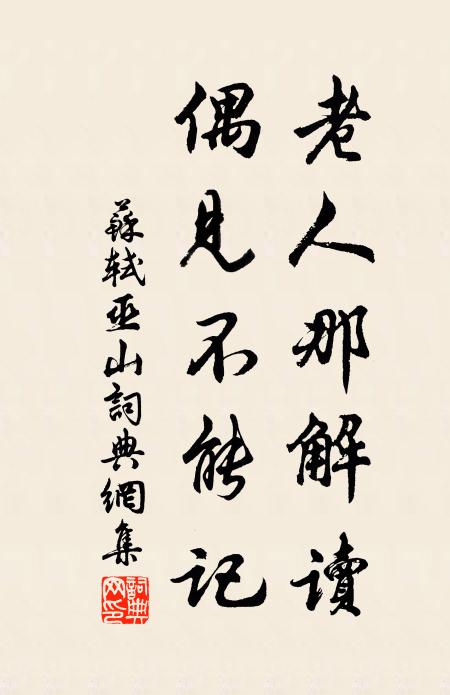 老人那解讀
偶見不能記
蘇軾巫山詞典網集
詞典網印